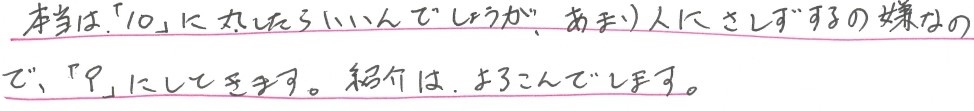 本当は、「10」に丸したらいいんでしょうが、あまり人にさしずするの嫌なの
で、「9」にしてきます。紹介は、よろこんでします。